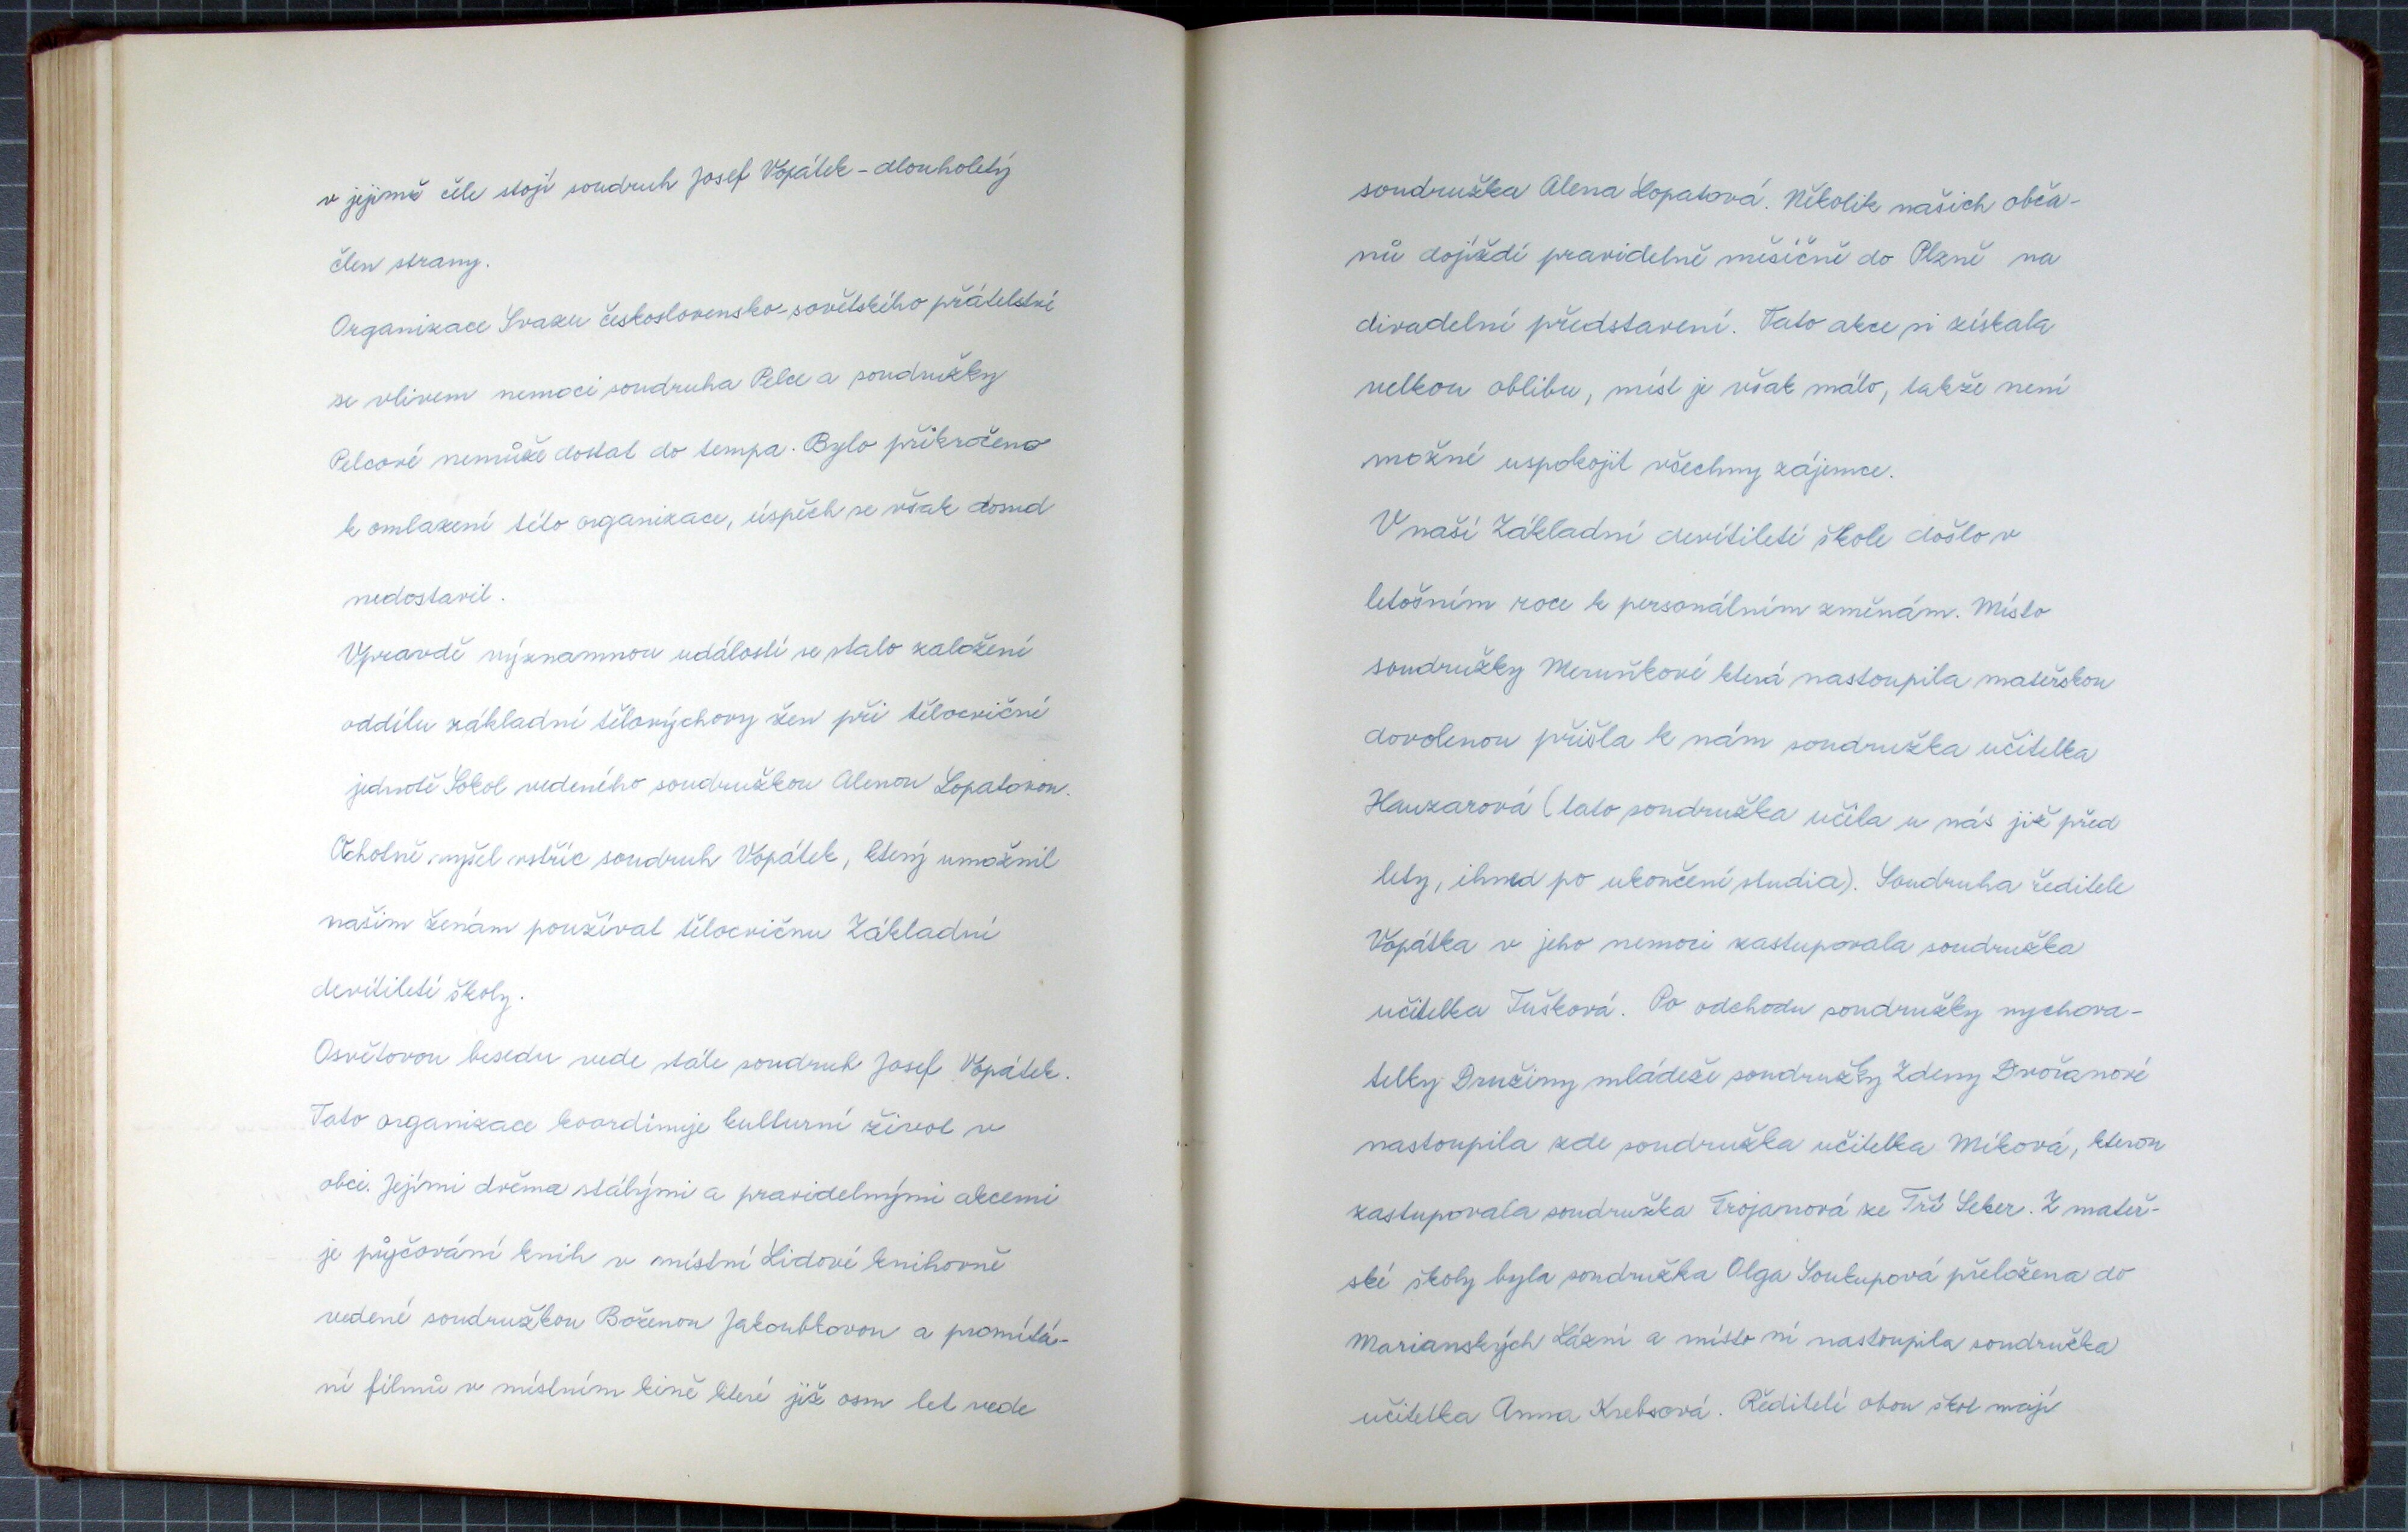 v jejímž čele stojí soudruh Josef Vopátek - dlouholetý
člen strany.
Organizace Svazu československo-sovětského přátelství
se vlivem nemoci soudruha Pelce a soudružky
Pelcové nemůže dostat do tempa. Bylo přikročeno
k omlazení této organizace, úspěch se však dosud
nedostavil.
Vpravdě významnou událostí se stalo založení
oddílu základní tělovýchovy žen při tělocvičné
jednotě Sokol vedeného soudružkou Alenou Lopatovou.
Ochotně vyšel vstříc soudruh Vopátek, který umožnil
našim ženám používat tělocvičnu Základní
devítileté školy.
Osvětovou besedu vede stále soudruh Josef Vopátek.
Tato organizace koordinuje kulturní život v
obci. Jejími dvěma stálými a pravidelnými akcemi
je půjčování knih v místní Lidové knihovně
vedené soudružkou Boženou Jakoubkovou a promítá-
ní filmů v místním kině které již osm let vede
soudružka Alena Lopatová. Několik našich obča-
nů dojíždí pravidelně měsíčně do Plzně na
divadelní představení. Tato akce si získala
velkou oblibu, míst je však málo, takže není
možné uspokojit všechny zájemce.
V naší Základní devítileté škole došlo v
letošním roce k personálním změnám. Místo
soudružky Meruňkové která nastoupila mateřskou
dovolenou přišla k nám soudružka učitelka
Hauzarová (tato soudružka učila u nás již před
lety, ihned po ukončení studia). Soudruha ředitele
Vopátka v jeho nemoci zastupovala soudružka
učitelka Tušková. Po odchodu soudružky vychova-
telky Družiny mládeže soudružky Zdeny Dvořanové
nastoupila zde soudružka učitelka Míková, kterou
zastupovala soudružka Trojanová ze Tří Seker. Z mateř-
ské školy byla soudružka Olga Soukupová přeložena do
Marianských Lázní a místo ní nastoupila soudružka
učitelka Anna Krebsová. Ředitelé obou škol mají